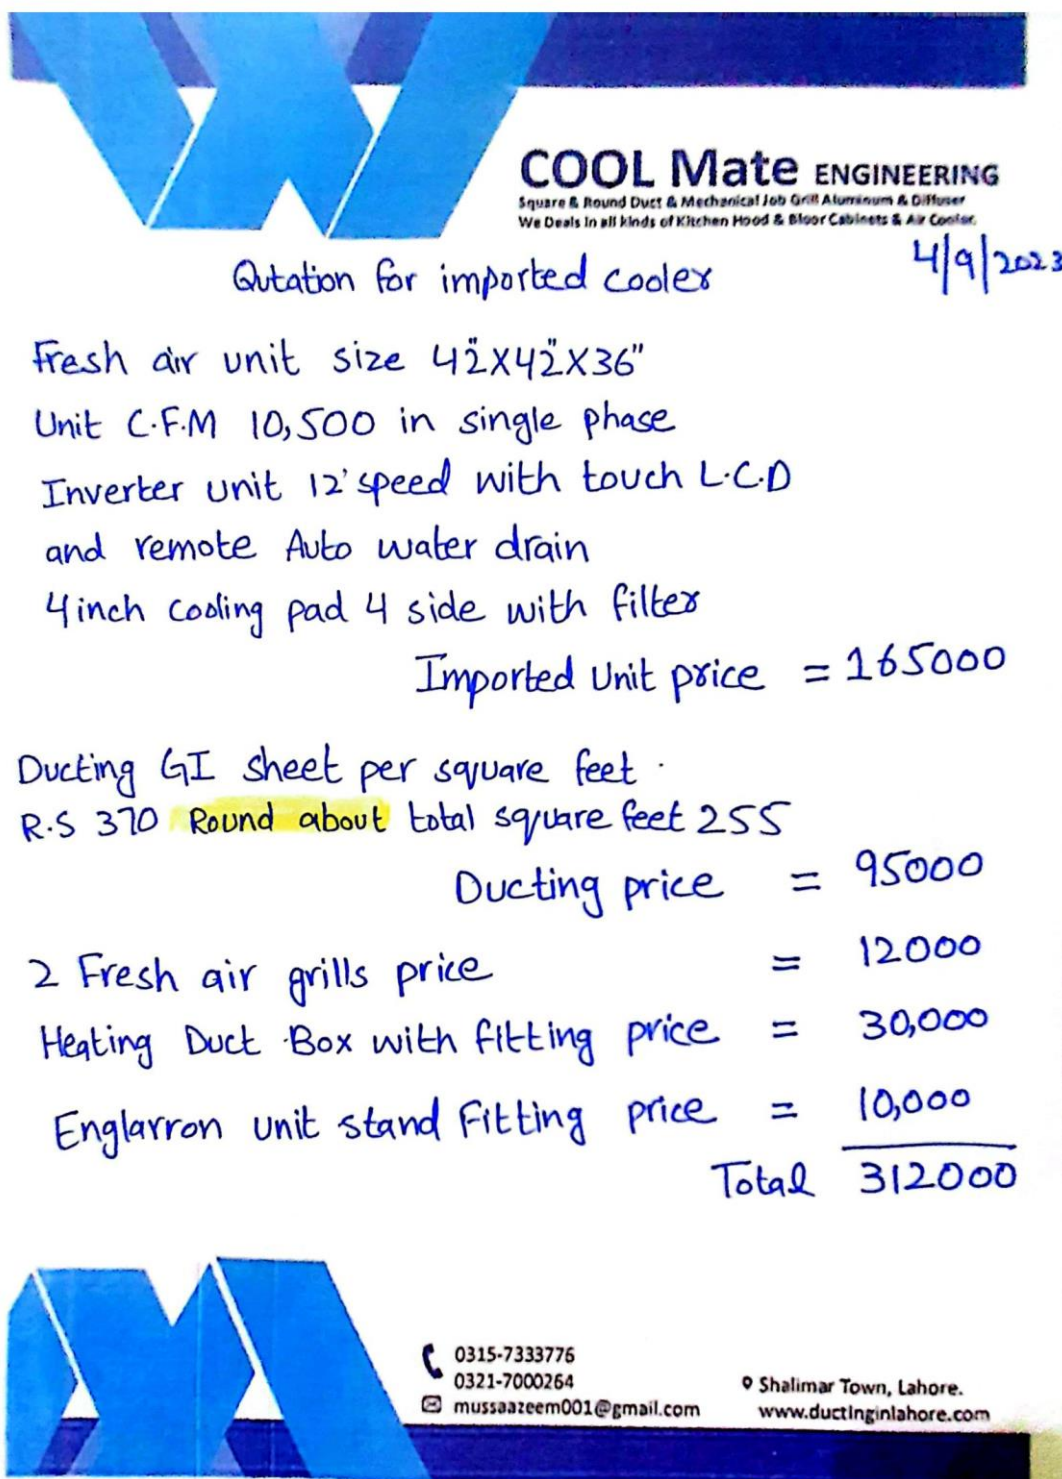 COOL Mate ENGINEERING
Square & Round Duct & Mechanical Job Grill Aluminum & Diffuser
We Deals in all kinds of Kitchen Hood & Bloor Cabinets & Air Cooler.
4/9/2023
Qutation for imported cooler
Fresh air unit size 42"X42"X36"
Unit C.F.M 10,500 in single phase
Inverter unit 12'speed with touch L.C.D
and remote Auto water drain
4inch cooling pad 4 side with filter
Imported Unit price = 165000
Ducting GI sheet per square feet.
R.S 370 Round about total square feet 255
Ducting price = 95000
2 Fresh air grills price = 12000
Heating Duct Box with fitting price = 30,000
Englarron unit stand Fitting price = 10,000
Total 312000
0315-7333776
0321-7000264
mussaazeem001@gmail.com
Shalimar Town, Lahore.
www.ductinginlahore.com